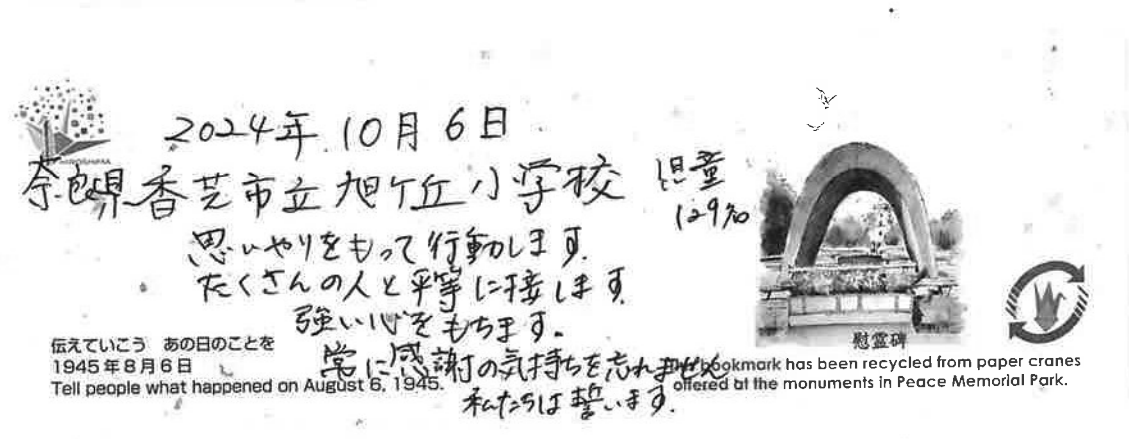 HIROSHIMA
2024年10月6日
奈良県香芝市立旭ケ丘小学校 児童
129名
思いやりをもって行動します。
たくさんの人と平等に接します。
強い心をもちます。
常に感謝の気持ちを忘れません
私たちは誓います。
伝えていこう あの日のことを
1945年8月6日
Tell people what happened on August 6, 1945.
慰霊碑
bookmark has been recycled from paper cranes
offered at the monuments in Peace Memorial Park.